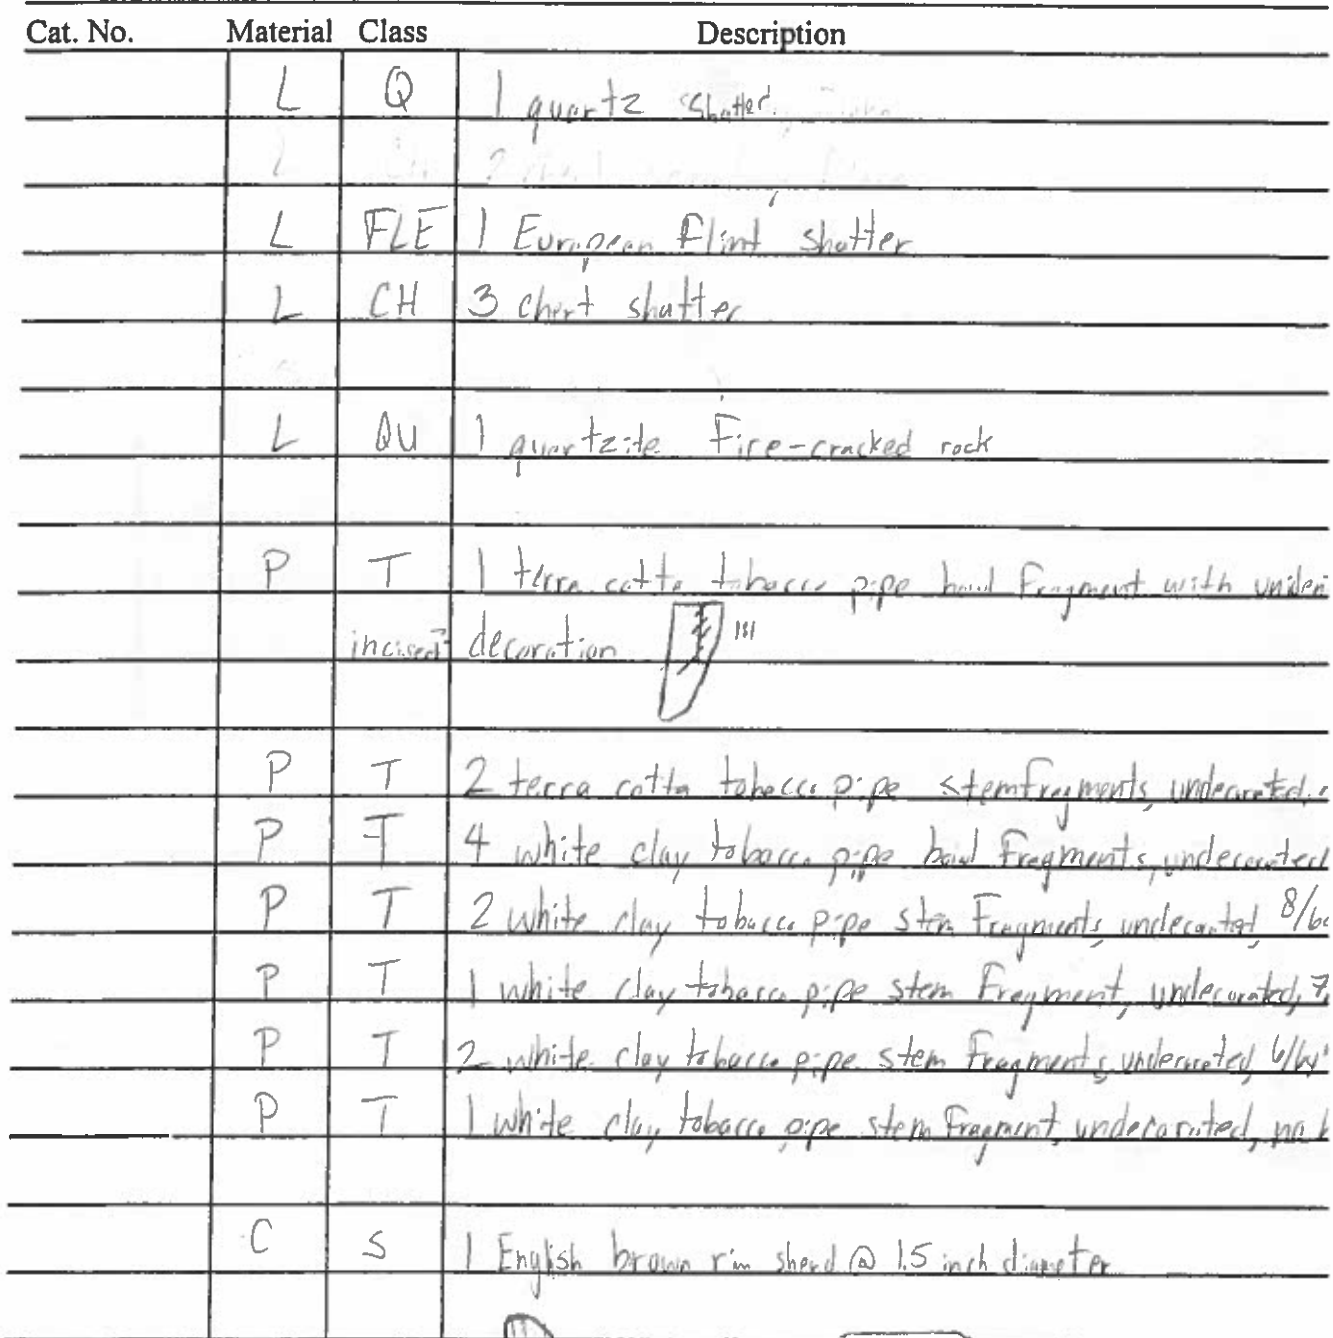 Cat. No. Material Class Description
L Q 1 quartz shatter
L 2
L FLE 1 European Flint shatter
L CH 3 chert shatter
L QU 1 quartzite Fire-cracked rock
P T 1 terra cotta tobacco pipe bowl Fragment with uniden
incised? decoration
P T 2 terra cotta tobacco pipe stem fragments, undecorated,
P T 4 white clay tobacco pipe bowl Fragments, undecorated
P T 2 white clay tobacco pipe stem Fragments, undecorated, 8/6
P T 1 white clay tobacco pipe stem Fragment, undecorated, 7
P T 2 white clay tobacco pipe stem Fragments, undecorated, 6/64"
P T 1 white clay tobacco pipe stem Fragment, undecorated, no b
C S 1 English brown rim sherd @ 1.5 inch diameter